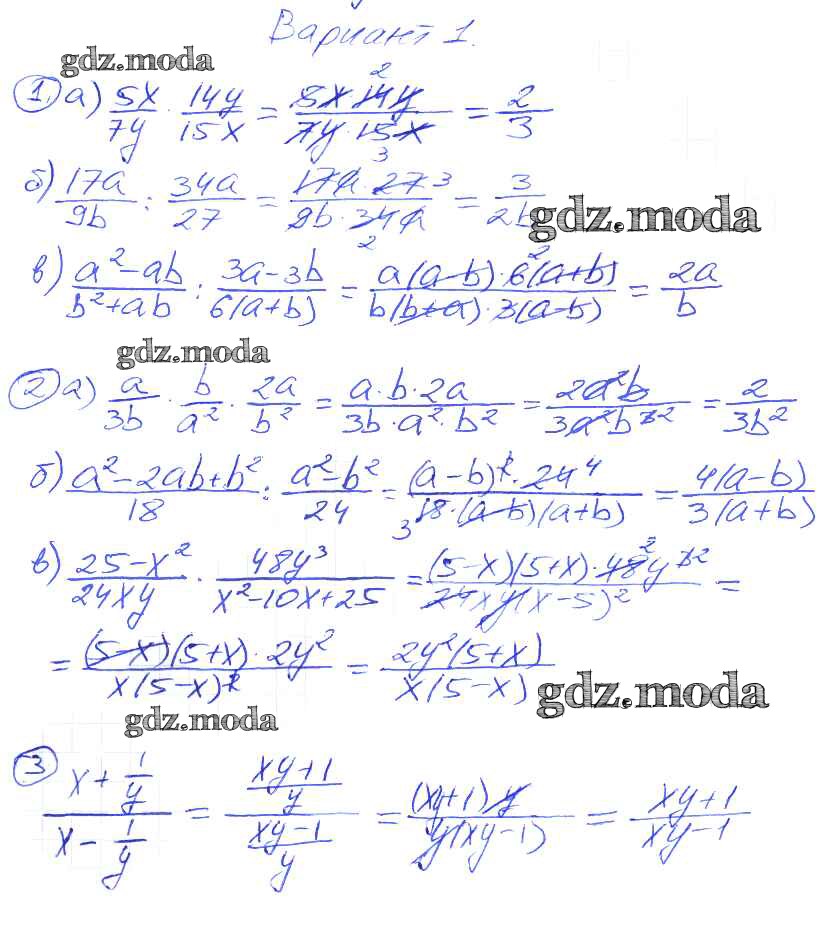 Вариант 1.
gdz.moda
① а) 5x/7y · 14y/15x = 5x·14y/7y·15x = 2/3
2
3
б) 17a/9b : 34a/27 = 17a·27/9b·34a = 3/2b
3
2
gdz.moda
в) a²-ab/b²+ab : 3a-3b/6(a+b) = a(a-b)·6(a+b)/b(b+a)·3(a-b) = 2a/b
2
gdz.moda
② а) a/3b · b/a² · 2a/b² = a·b·2a/3b·a²·b² = 2a²b/3a²b³ = 2/3b²
2
б) a²-2ab+b²/18 : a²-b²/24 = (a-b)²·24/18·(a-b)(a+b) = 4(a-b)/3(a+b)
4
3
в) 25-x²/24xy · 48y³/x²-10x+25 = (5-x)(5+x)·48y³/24xy(x-5)² =
2
2
= (5-x)(5+x)·2y²/x(5-x)² = 2y²(5+x)/x(5-x)
gdz.moda
gdz.moda
③ x+1/y / x-1/y = xy+1/y / xy-1/y = (xy+1)y/y(xy-1) = xy+1/xy-1